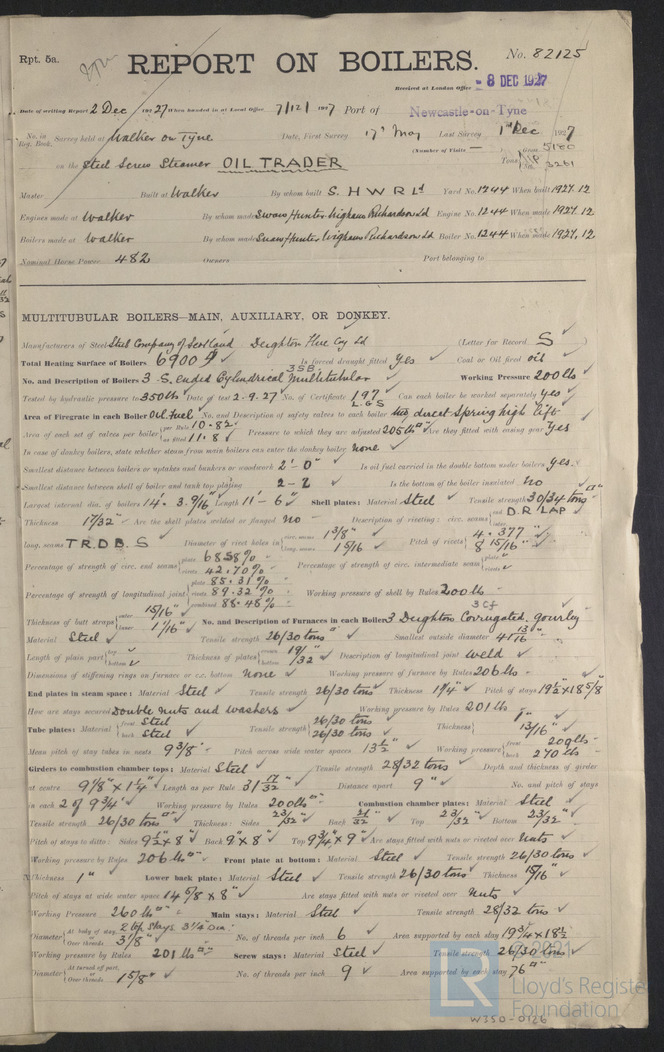 Rpt. 5a.
REPORT ON BOILERS.
No. 82125
Received at London Office - 8 DEC 1927
Date of writing Report 2 Dec 1927 When handed in at Local Office 7/12/1927 Port of Newcastle-on-Tyne
No. in Reg. Book. Survey held at Walker on Tyne Date, First Survey 17th May Last Survey 1st Dec 1927
(Number of Visits —
Gross 5180
on the Steel Screw Steamer OIL TRADER Tons Net 3261
Master Built at Walker By whom built S. H W R Ld Yard No. 1244 When built 1927.12
Engines made at Walker By whom made Swan Hunter Wigham Richardson Ld Engine No. 1244 When made 1927.12
Boilers made at Walker By whom made Swan Hunter Wigham Richardson Ld Boiler No. 1244 When made 1927.12
Nominal Horse Power 482 Owners Port belonging to
MULTITUBULAR BOILERS—MAIN, AUXILIARY, OR DONKEY.
Manufacturers of Steel Steel Company of Scotland Deighton Flue Coy Ld (Letter for Record S)
Total Heating Surface of Boilers 6900 Is forced draught fitted Yes Coal or Oil fired oil
3 SB
No. and Description of Boilers 3 S. ended Cylindrical Multitubular Working Pressure 200 lbs
Tested by hydraulic pressure to 350 lbs Date of test 2.9.27 No. of Certificate 197 L.G.S Can each boiler be worked separately yes
Area of Firegrate in each Boiler Oil Fuel No. and Description of safety valves to each boiler two direct Spring high lift
Area of each set of valves per boiler per Rule 10.82 as fitted 11.8 Pressure to which they are adjusted 205 lbs Are they fitted with easing gear Yes
In case of donkey boilers, state whether steam from main boilers can enter the donkey boiler none
Smallest distance between boilers or uptakes and bunkers or woodwork 2'-0" Is oil fuel carried in the double bottom under boilers yes
Smallest distance between shell of boiler and tank top plating 2-2 Is the bottom of the boiler insulated no
Largest internal dia. of boilers 14'-3.9/16" Length 11'-6" Shell plates: Material Steel Tensile strength 30/34 tons
Thickness 1 7/32" Are the shell plates welded or flanged no Description of riveting: circ. seams end D.R LAP
long. seams T.R.D.B.S Diameter of rivet holes in circ. seams 1 3/8" long. seams 1 5/16 Pitch of rivets 4.377" 8 15/16"
Percentage of strength of circ. end seams plate 68.58% rivets 42.70% Percentage of strength of circ. intermediate seam plate rivets
Percentage of strength of longitudinal joint plate 85.31% rivets 89.32% combined 88.48% Working pressure of shell by Rules 200 lbs
3 Cf
Thickness of butt straps outer 15/16" inner 1 1/16" No. and Description of Furnaces in each Boiler 3 Deighton Corrugated. gourley
Material Steel Tensile strength 26/30 tons Smallest outside diameter 41 13/16"
Length of plain part top bottom Thickness of plates crown bottom 19/32" Description of longitudinal joint weld
Dimensions of stiffening rings on furnace or c.c. bottom None Working pressure of furnace by Rules 206 lbs
End plates in steam space: Material Steel Tensile strength 26/30 tons Thickness 1 1/4" Pitch of stays 19 1/2 x 18 5/8
How are stays secured Double nuts and washers Working pressure by Rules 201 lbs
Tube plates: Material front Steel back Steel Tensile strength 26/30 tons 26/30 tons Thickness 1" 13/16"
Mean pitch of stay tubes in nests 9 3/8" Pitch across wide water spaces 13 1/2" Working pressure front 200 lbs back 270 lbs
Girders to combustion chamber tops: Material Steel Tensile strength 28/32 tons Depth and thickness of girder
at centre 9 1/8" x 1 1/4" Length as per Rule 31 17/32" Distance apart 9" No. and pitch of stays
in each 2 of 9 3/4" Working pressure by Rules 200 lbs Combustion chamber plates: Material Steel
Tensile strength 26/30 tons Thickness: Sides 23/32" Back 21/32" Top 23/32" Bottom 23/32"
Pitch of stays to ditto: Sides 9 1/2" x 8" Back 9" x 8" Top 9 3/4" x 9" Are stays fitted with nuts or riveted over Nuts
Working pressure by Rules 206 lbs Front plate at bottom: Material Steel Tensile strength 26/30 tons
Thickness 1" Lower back plate: Material Steel Tensile strength 26/30 tons Thickness 15/16"
Pitch of stays at wide water space 14 5/8 x 8" Are stays fitted with nuts or riveted over Nuts
Working Pressure 260 lbs Main stays: Material Steel Tensile strength 28/32 tons
Diameter At body of stay, or Over threads 2 top stays 3 1/4" Dia. 3 1/8" No. of threads per inch 6 Area supported by each stay 19 3/4 x 18 1/2
Working pressure by Rules 201 lbs Screw stays: Material Steel Tensile strength 26/30 tons
Diameter At turned off part, or Over threads 1 5/8" No. of threads per inch 9 Area supported by each stay 76"
© 2021
LR
Lloyd's Register
Foundation
W350-0126